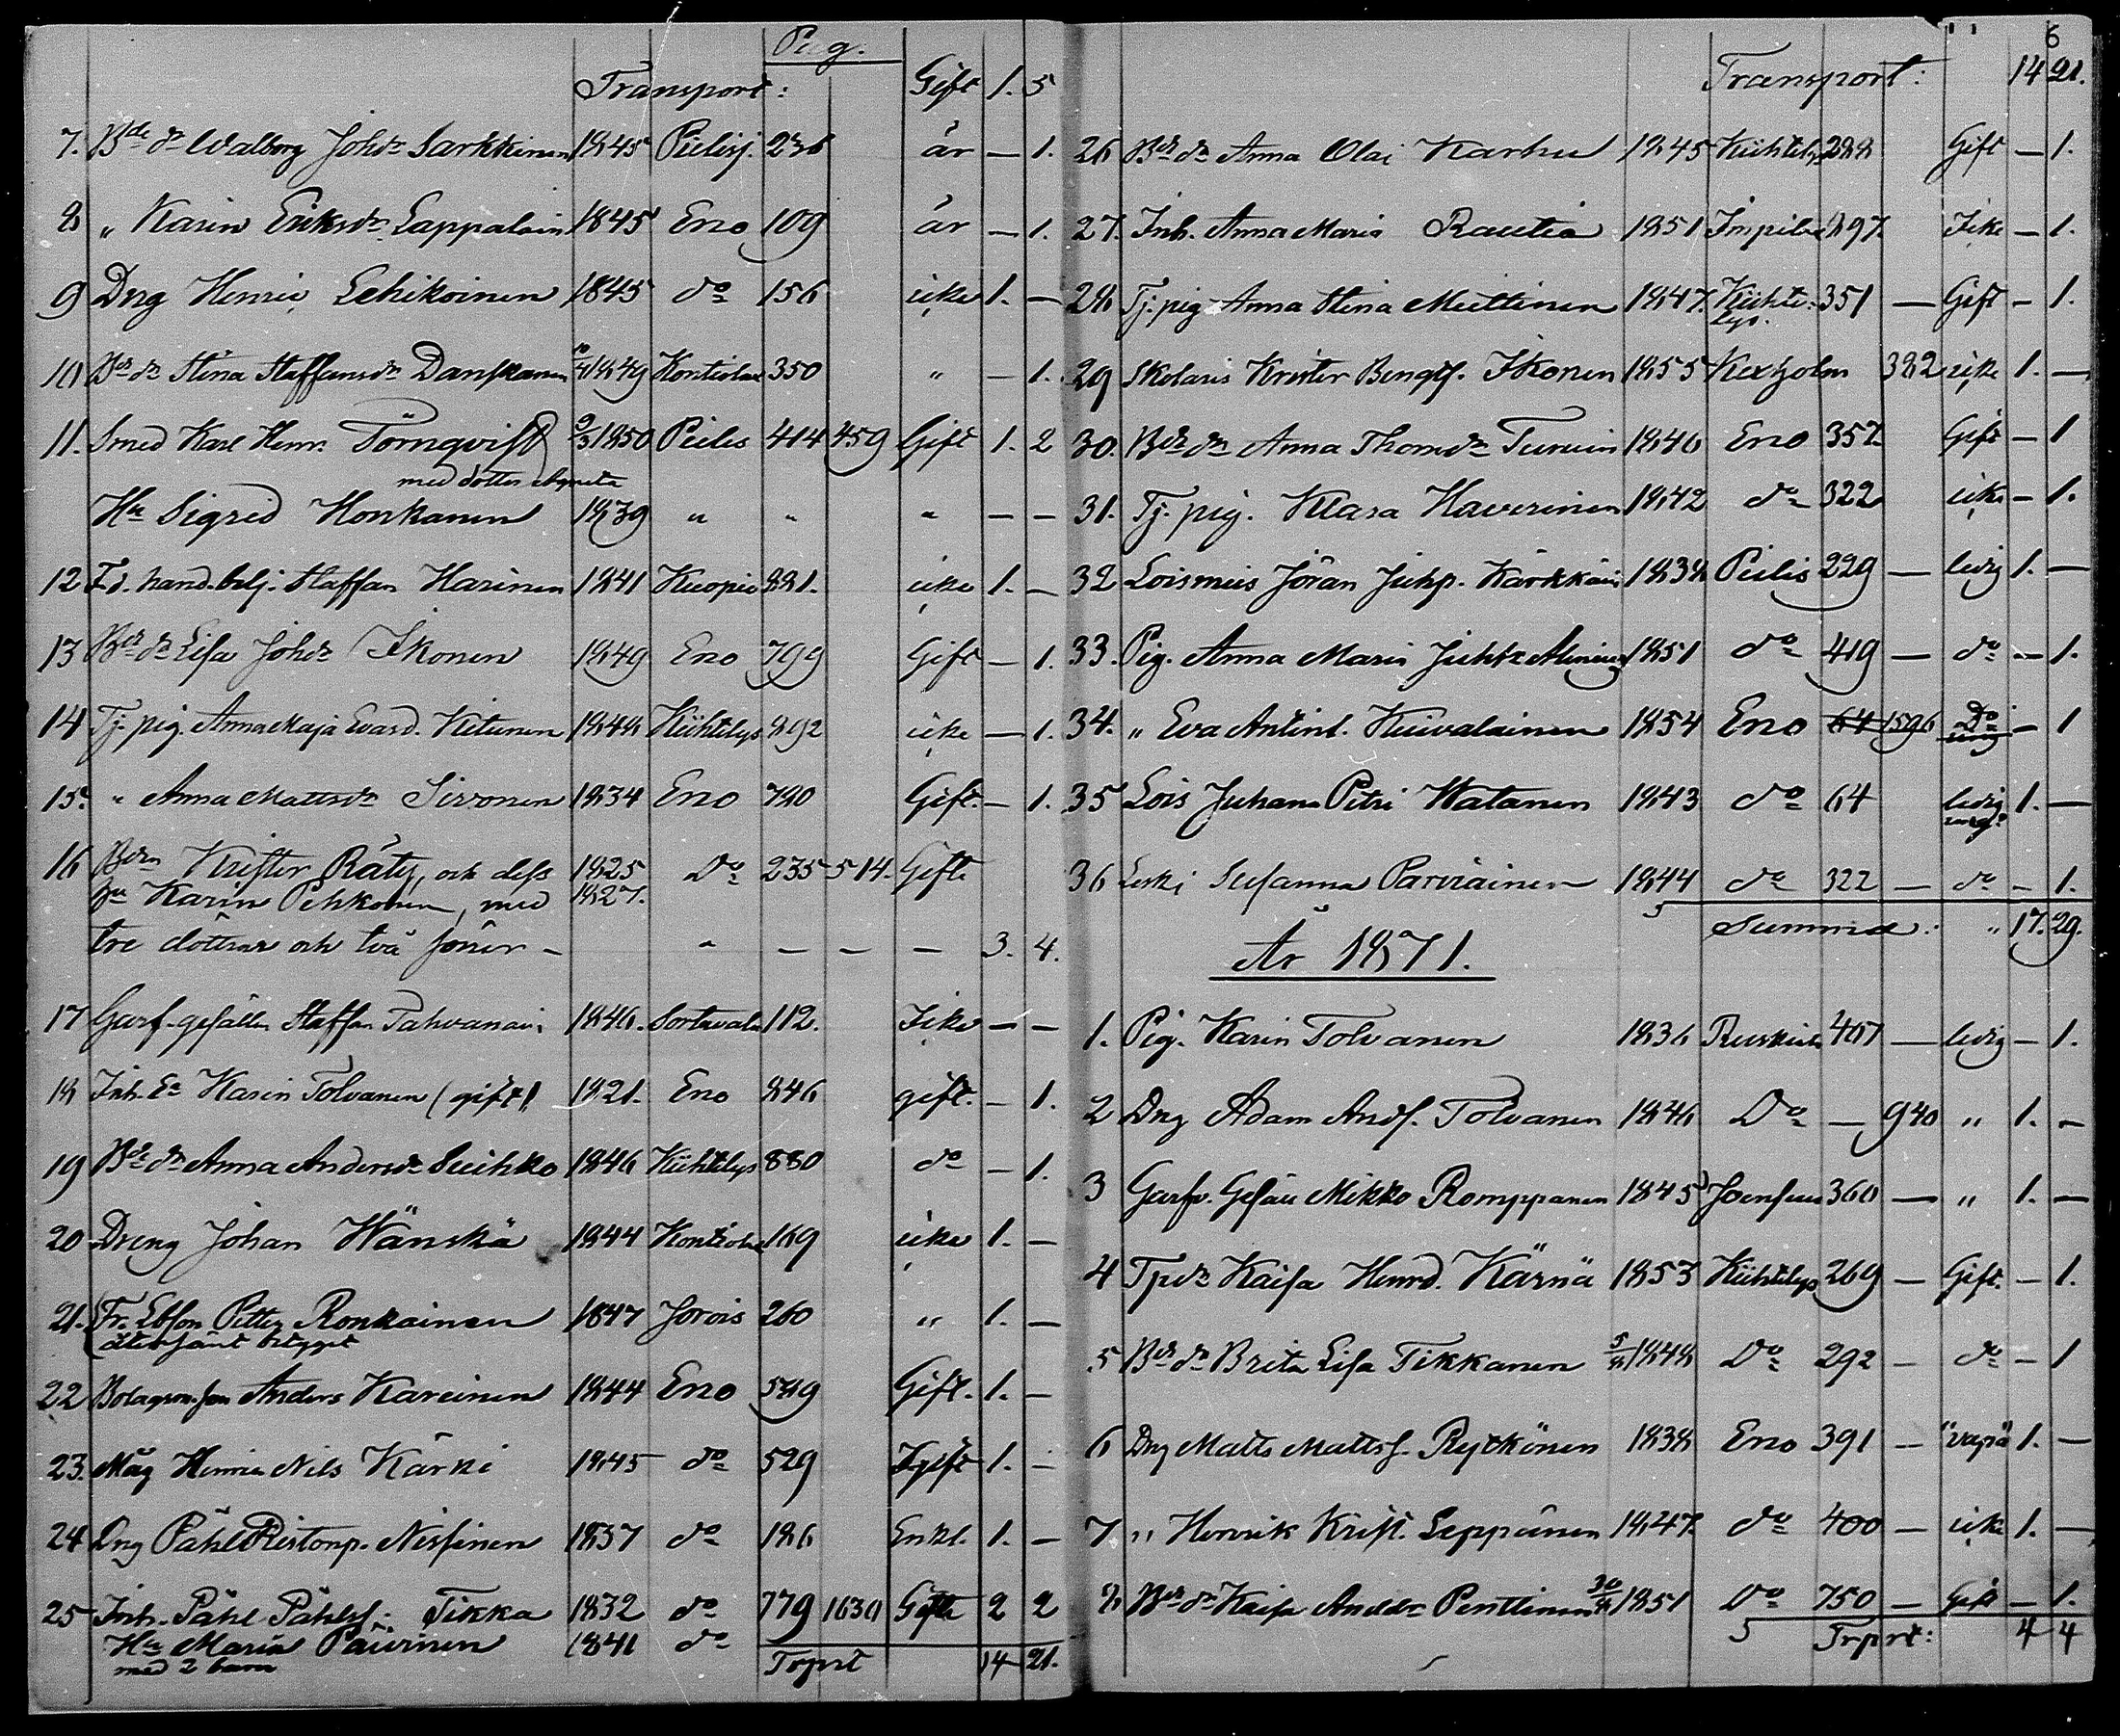 Pag.
Transport: Gift 1. 5
7. Bde dr Walborg Johdr Sarkkinen 1845 Pielisj. 236 är — 1.
8 " Karin Eriksdr Lappalain 1845 Eno 109 är — 1.
9 Dng Henric Lehikoinen 1845 do 156 icke 1. —
10 Bde dr Stina Staffansdr Danskanen 1849 Kontiolax 350 " — 1.
11. Smed Karl Henr. Törnqvist 9/3 1850 Pielis 414 459 Gift 1. 2
med dotter Agneta
Hu Sigrid Honkanen 1839 " " " — —
12 Fd. hand. betj. Staffan Harinen 1841 Kuopio 221. icke 1. —
13 Bde dr Lisa Johdr Ikonen 1849 Eno 799 Gift — 1.
14 Tj. pig. Anna Maja Evasd. Ketunen 1848 Kiihtelys 292 icke — 1.
15. " Anna Mattsdr Sirvonen 1834 Eno 780 Gift. — 1.
16 Bdn Krister Räty, och dess 1825 Do 235 514. Gifte
hu Karin Pehkonen, med 1827.
tre döttrar och två söner — " — — — 3. 4.
17 Garf-gesällen Staffan Tahvanain 1846. Sortavala 112. Icke — —
18 Inh. Ea Karin Tolvanen (gift) 1821. Eno 246 gift. — 1.
19 Bde dr Anna Andersdr Suihko 1846 Kiihtelys 880 do — 1.
20 Dreng Johan Hänskä 1844 Kontiolax 169 icke 1. —
21. Fr. Ebson Petter Ronkainen 1847 Jorois 260 " 1. —
återsänt betyget
22 Bolagsm. son Anders Kareinen 1844 Eno 589 Gift. 1. —
23. Måg Henric Nils Kärki 1845 do 529 Gift 1. —
24 Dng Påhl Ristonp. Nissinen 1837 do 186 Enkl. 1. —
25 Inh. Påhl Påhlss: Tikka 1832 do 779 1630 Gifta 2 2
Hu Maria Päivinen 1841 do
med 2 barn Trprt 14 21.
6
Transport: 14 21.
26 Bde dr Anna Olai Karhu 1845 Kiihtelys 288 Gift — 1.
27. Inh. Anna Maria Rautia 1851 Impilax 297. Icke — 1.
28 Tj. pig Anna Stina Muttinen 1847. Kiihte- 351 — Gift — 1.
lys.
29 Skolaris Krister Bengts. Ikonen 1855 Kexholm 382 icke 1. —
30. Bde dr Anna Thomdr Turuin 1840 Eno 357 Gift — 1
31. Tj. pig. Klara Haverinen 1842 do 322 icke — 1.
32 Loismies Jöran Juhp. Kärkkäin 1838 Pielis 229 — ledig 1. —
33. Pig. Anna Maria Juhtr 1851 do 419 — do — 1.
34. " Eva Antint. Kiiwalainen 1854 Eno 64 1596 Do — 1
35 Lois Juhana Petri Watanen 1843 do 64 ledig 1. —
36 Leski Susanna Parviainen 1844 do 322 — do — 1.
Summa: " 17. 29.
År 1871.
1. Pig. Karin Tolvanen 1836 Ruskiala 407 — ledig — 1.
2 Dng Adam Ands. Tolvanen 1846 Do — 940 " 1. —
3 Garfv. Gesäll Mikko Romppanen 1845 Joensuu 360 — " 1. —
4 Tpdr Kaisa Henrd. Kärnä 1853 Kiihtelys 269 — Gift. — 1.
5 Bde dr Brita Lisa Tikkanen 5/8 1848 Do 292 — do — 1
6 Dng Matts Mattss. Rytkönen 1838 Eno 391 — "vapa" 1. —
7 " Henrik Krist. Leppänen 1847. do 400 — icke 1. —
8 Bde dr Kaisa Anddr Penttinen 1851 Do 750 — Gift — 1.
Trprt: 4 4